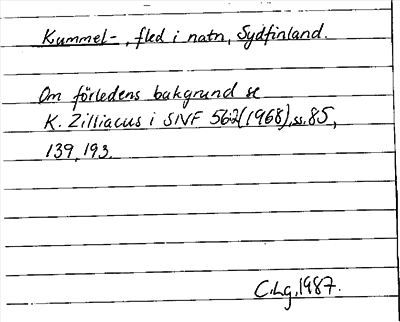 Kummel-, fled i natn, Sydfinland.
Om förledens bakgrund se
K. Zilliacus i SNF 562(1968), ss. 85,
139, 193.
C.Lg, 1987.